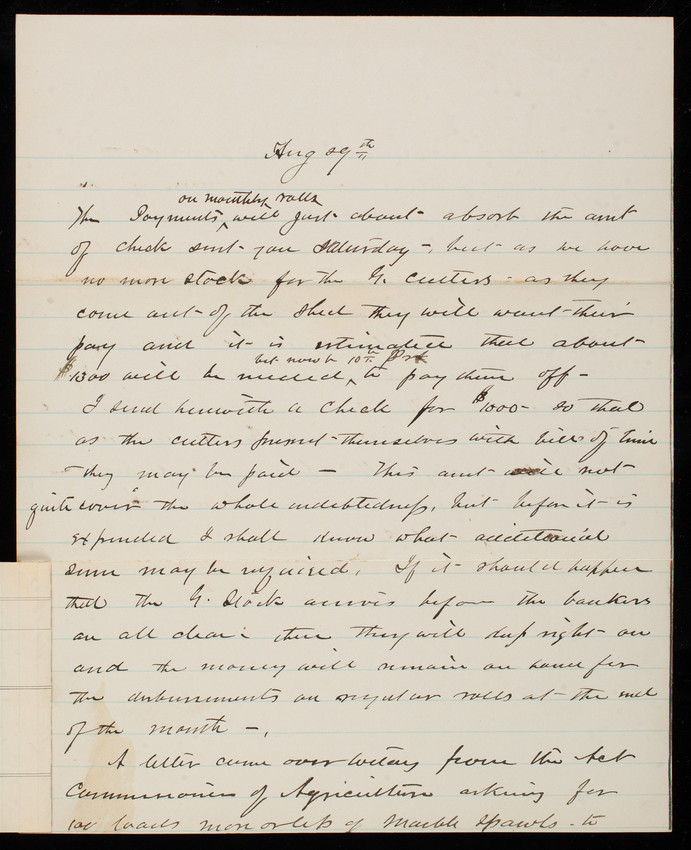 Aug 29th
on monthly rolls
The Payments will just about absorb the amt
of check sent you Saturday -, but as we have
no more stock for the G. cutters - as they
come out of the shed they will want their
pay and it is estimated that about
bet now & 10th Prx
$1300 will be needed, to pay them off -
I send herewith a check for $1000 - so that
as the cutters present themselves with bills of time
they may be paid - This amt will not
quite cover the whole indebtedness, but before it is
expended I shall know what additional
sum may be required. If it should happen
that the G. Stock arrives before the
are all clear then they will keep right on
and the money will remain on hand for
the disbursements on regular rolls at the end
of the month -,
A letter came over today from the Act
Commissioner of Agriculture asking for
100 loads more or less of Marble Spawls - to